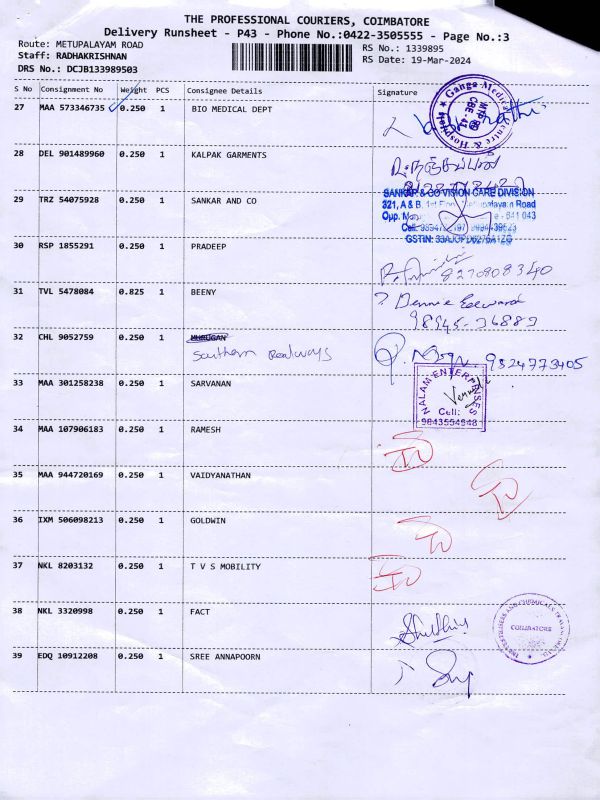 THE PROFESSIONAL COURIERS, COIMBATORE
Delivery Runsheet - P43 - Phone No.:0422-3505555 - Page No.:3
Route: METUPALAYAM ROAD
RS No.: 1339895
Staff: RADHAKRISHNAN
RS Date: 19-Mar-2024
DRS No.: DCJB133989503
S No Consignment No Weight PCS Consignee Details Signature
27 MAA 573346735 0.250 1 BIO MEDICAL DEPT
Ganga Medical Centre & Hospital
28 DEL 901489960 0.250 1 KALPAK GARMENTS
29 TRZ 54075928 0.250 1 SANKAR AND CO
SANKAR & CO VISION CARE DIVISION
321, A & B, 1st Floor, Mettupalayam Road
641 043
30 RSP 1855291 0.250 1 PRADEEP
8270808340
31 TVL 5478084 0.825 1 BEENY
32 CHL 9052759 0.250 1 MURUGAN
Southern Railways
9524773405
33 MAA 301258238 0.250 1 SARVANAN
NALAM ENTERPRISES
Cell:
9843554848
34 MAA 107906183 0.250 1 RAMESH
35 MAA 944720169 0.250 1 VAIDYANATHAN
36 IXM 506098213 0.250 1 GOLDWIN
37 NKL 8203132 0.250 1 T V S MOBILITY
38 NKL 3320998 0.250 1 FACT
COIMBATORE
39 EDQ 10912208 0.250 1 SREE ANNAPOORN